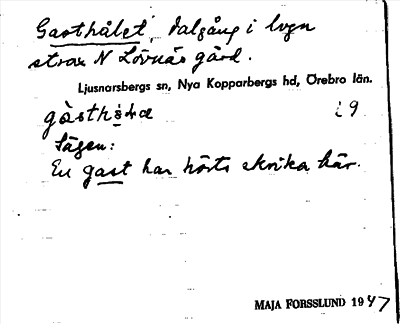 Gasthålet, dalgång i lugn
strax N Lövnäs gård.
Ljusnarsbergs sn, Nya Kopparbergs hd, Örebro län.
i 9
Sägen:
En gast har hörts skrika här.
MAJA FORSSLUND 1947